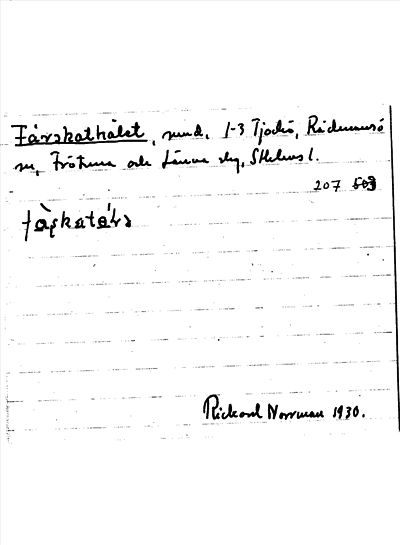 Fårskathålet, sund, 1-3 Tjockö, Rådmansö
sn, Frötuna och Länna slg, Sthlms l.
207
fåskatǻɭs
Rickard Norrman 1930.